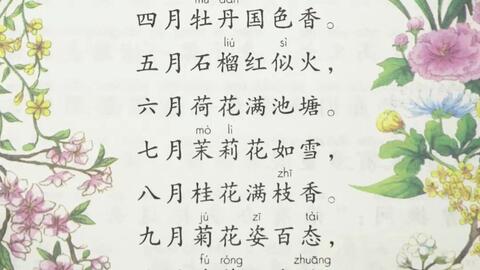 mǔ dān
四月牡丹国色香。
liú sì
五月石榴红似火，
六月荷花满池塘。
mò lì
七月茉莉花如雪，
zhī
八月桂花满枝香。
jú zī tài
九月菊花姿百态，
fú róng zhuāng